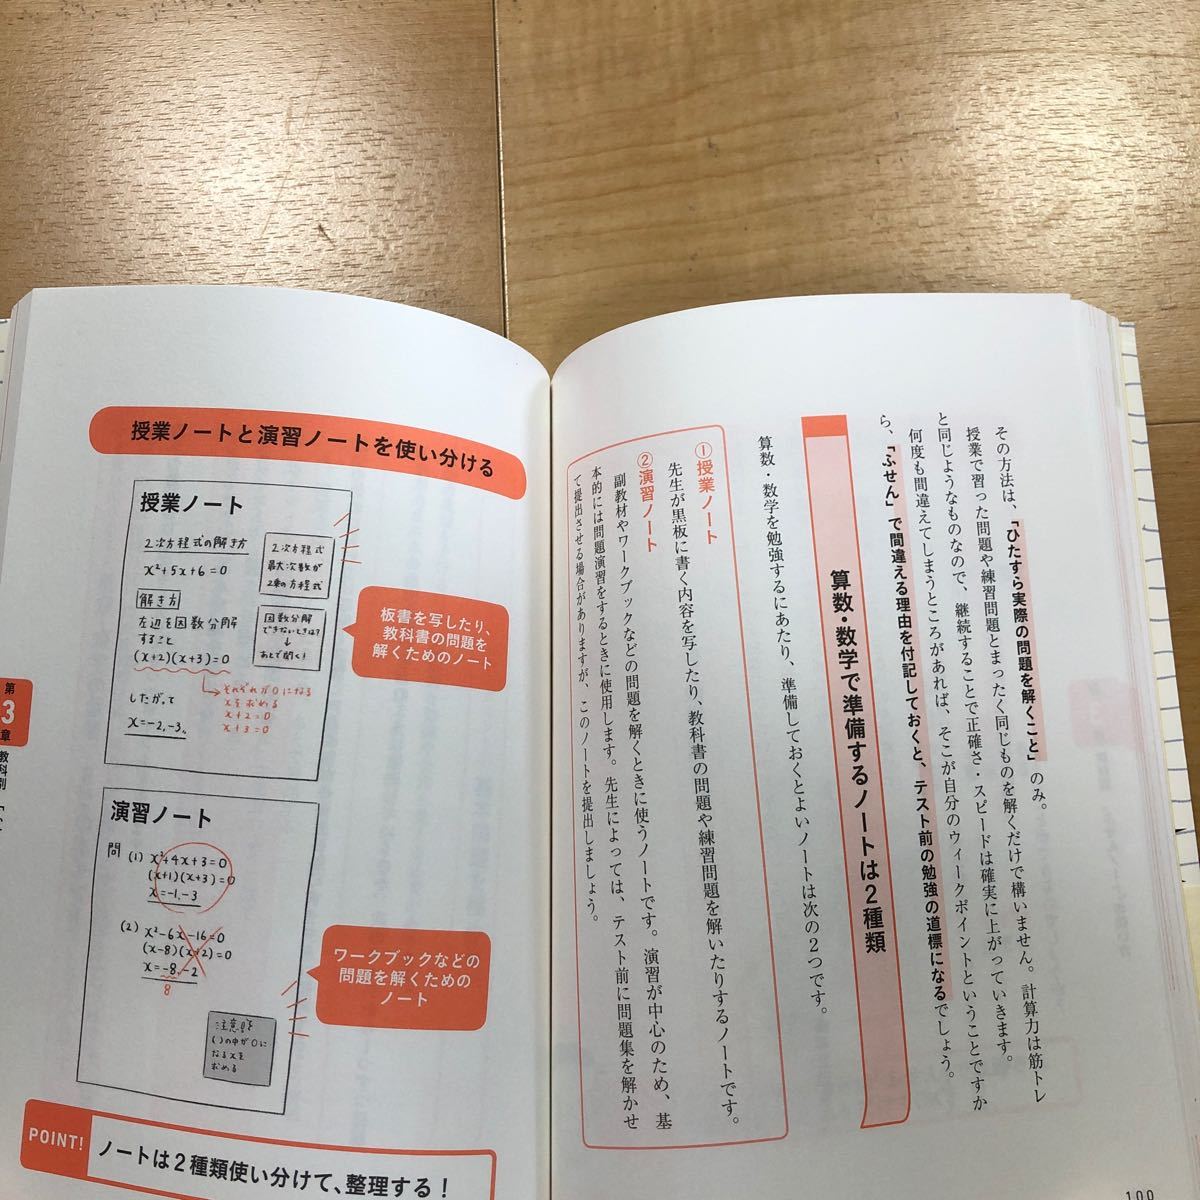 その方法は、「ひたすら実際の問題を解くこと」のみ。
授業で習った問題や練習問題とまったく同じものを解くだけで構いません。計算力は筋トレ
と同じようなものなので、継続することで正確さ・スピードは確実に上がっていきます。
何度も間違えてしまうところがあれば、そこが自分のウィークポイントということですか
ら、「ふせん」で間違える理由を付記しておくと、テスト前の勉強の道標になるでしょう。
算数・数学で準備するノートは2種類
算数・数学を勉強するにあたり、準備しておくとよいノートは次の2つです。
①授業ノート
先生が黒板に書く内容を写したり、教科書の問題や練習問題を解いたりするノートです。
②演習ノート
副教材やワークブックなどの問題を解くときに使うノートです。演習が中心のため、基
本的には問題演習をするときに使用します。先生によっては、テスト前に問題集を解かせ
て提出させる場合がありますが、このノートを提出しましょう。
100
授業ノートと演習ノートを使い分ける
授業ノート
2次方程式の解き方
x²+5x+6=0
解き方
左辺を因数分解
すること
(x+2)(x+3)=0
したがって
x=-2,-3
2次方程式
最大次数が
2乗の方程式
因数分解
できないときは?
↓
あとで聞く!
それぞれが0になる
xを求める
x+2=0
x+3=0
板書を写したり、
教科書の問題を
解くためのノート
演習ノート
問 (1) x²+4x+3=0
(x+1)(x+3)=0
x=-1,-3
(2) x²-6x-16=0
(x-8)(x+2)=0
x=-8,-2
8
注意点を
( )の中が0に
なるxを
求める
ワークブックなどの
問題を解くための
ノート
POINT!
ノートは2種類使い分けて、整理する!
第
3
章
教科別